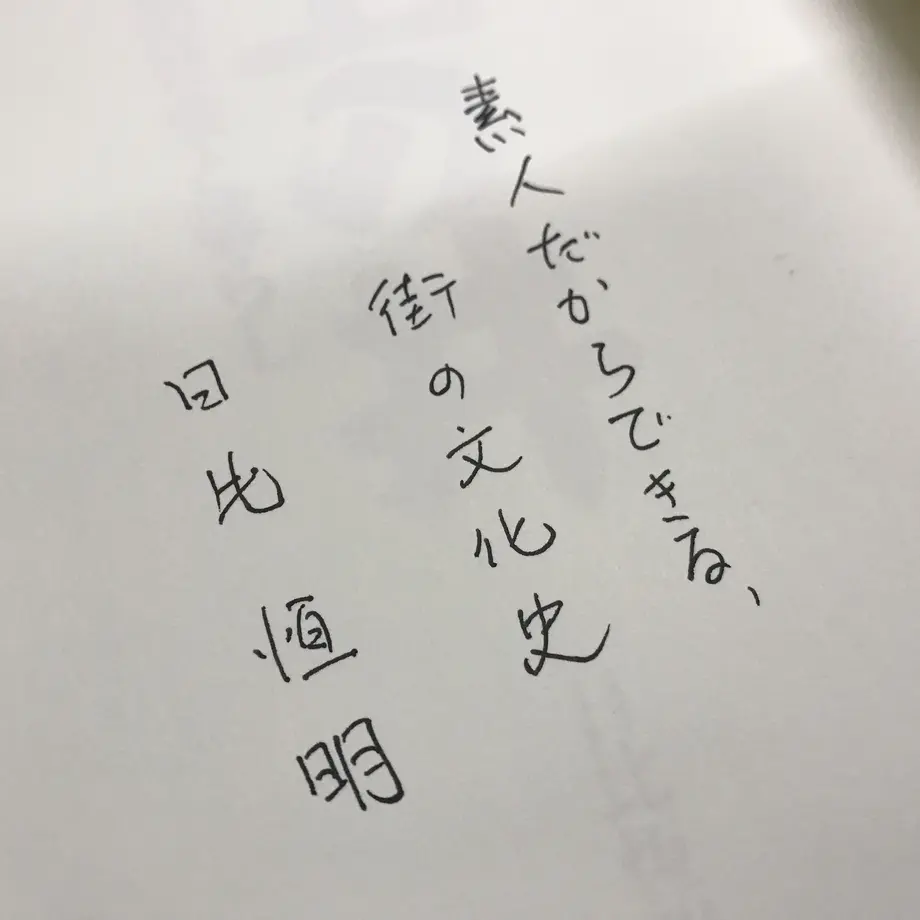 素人だからできる、
街の文化史
日比恒明